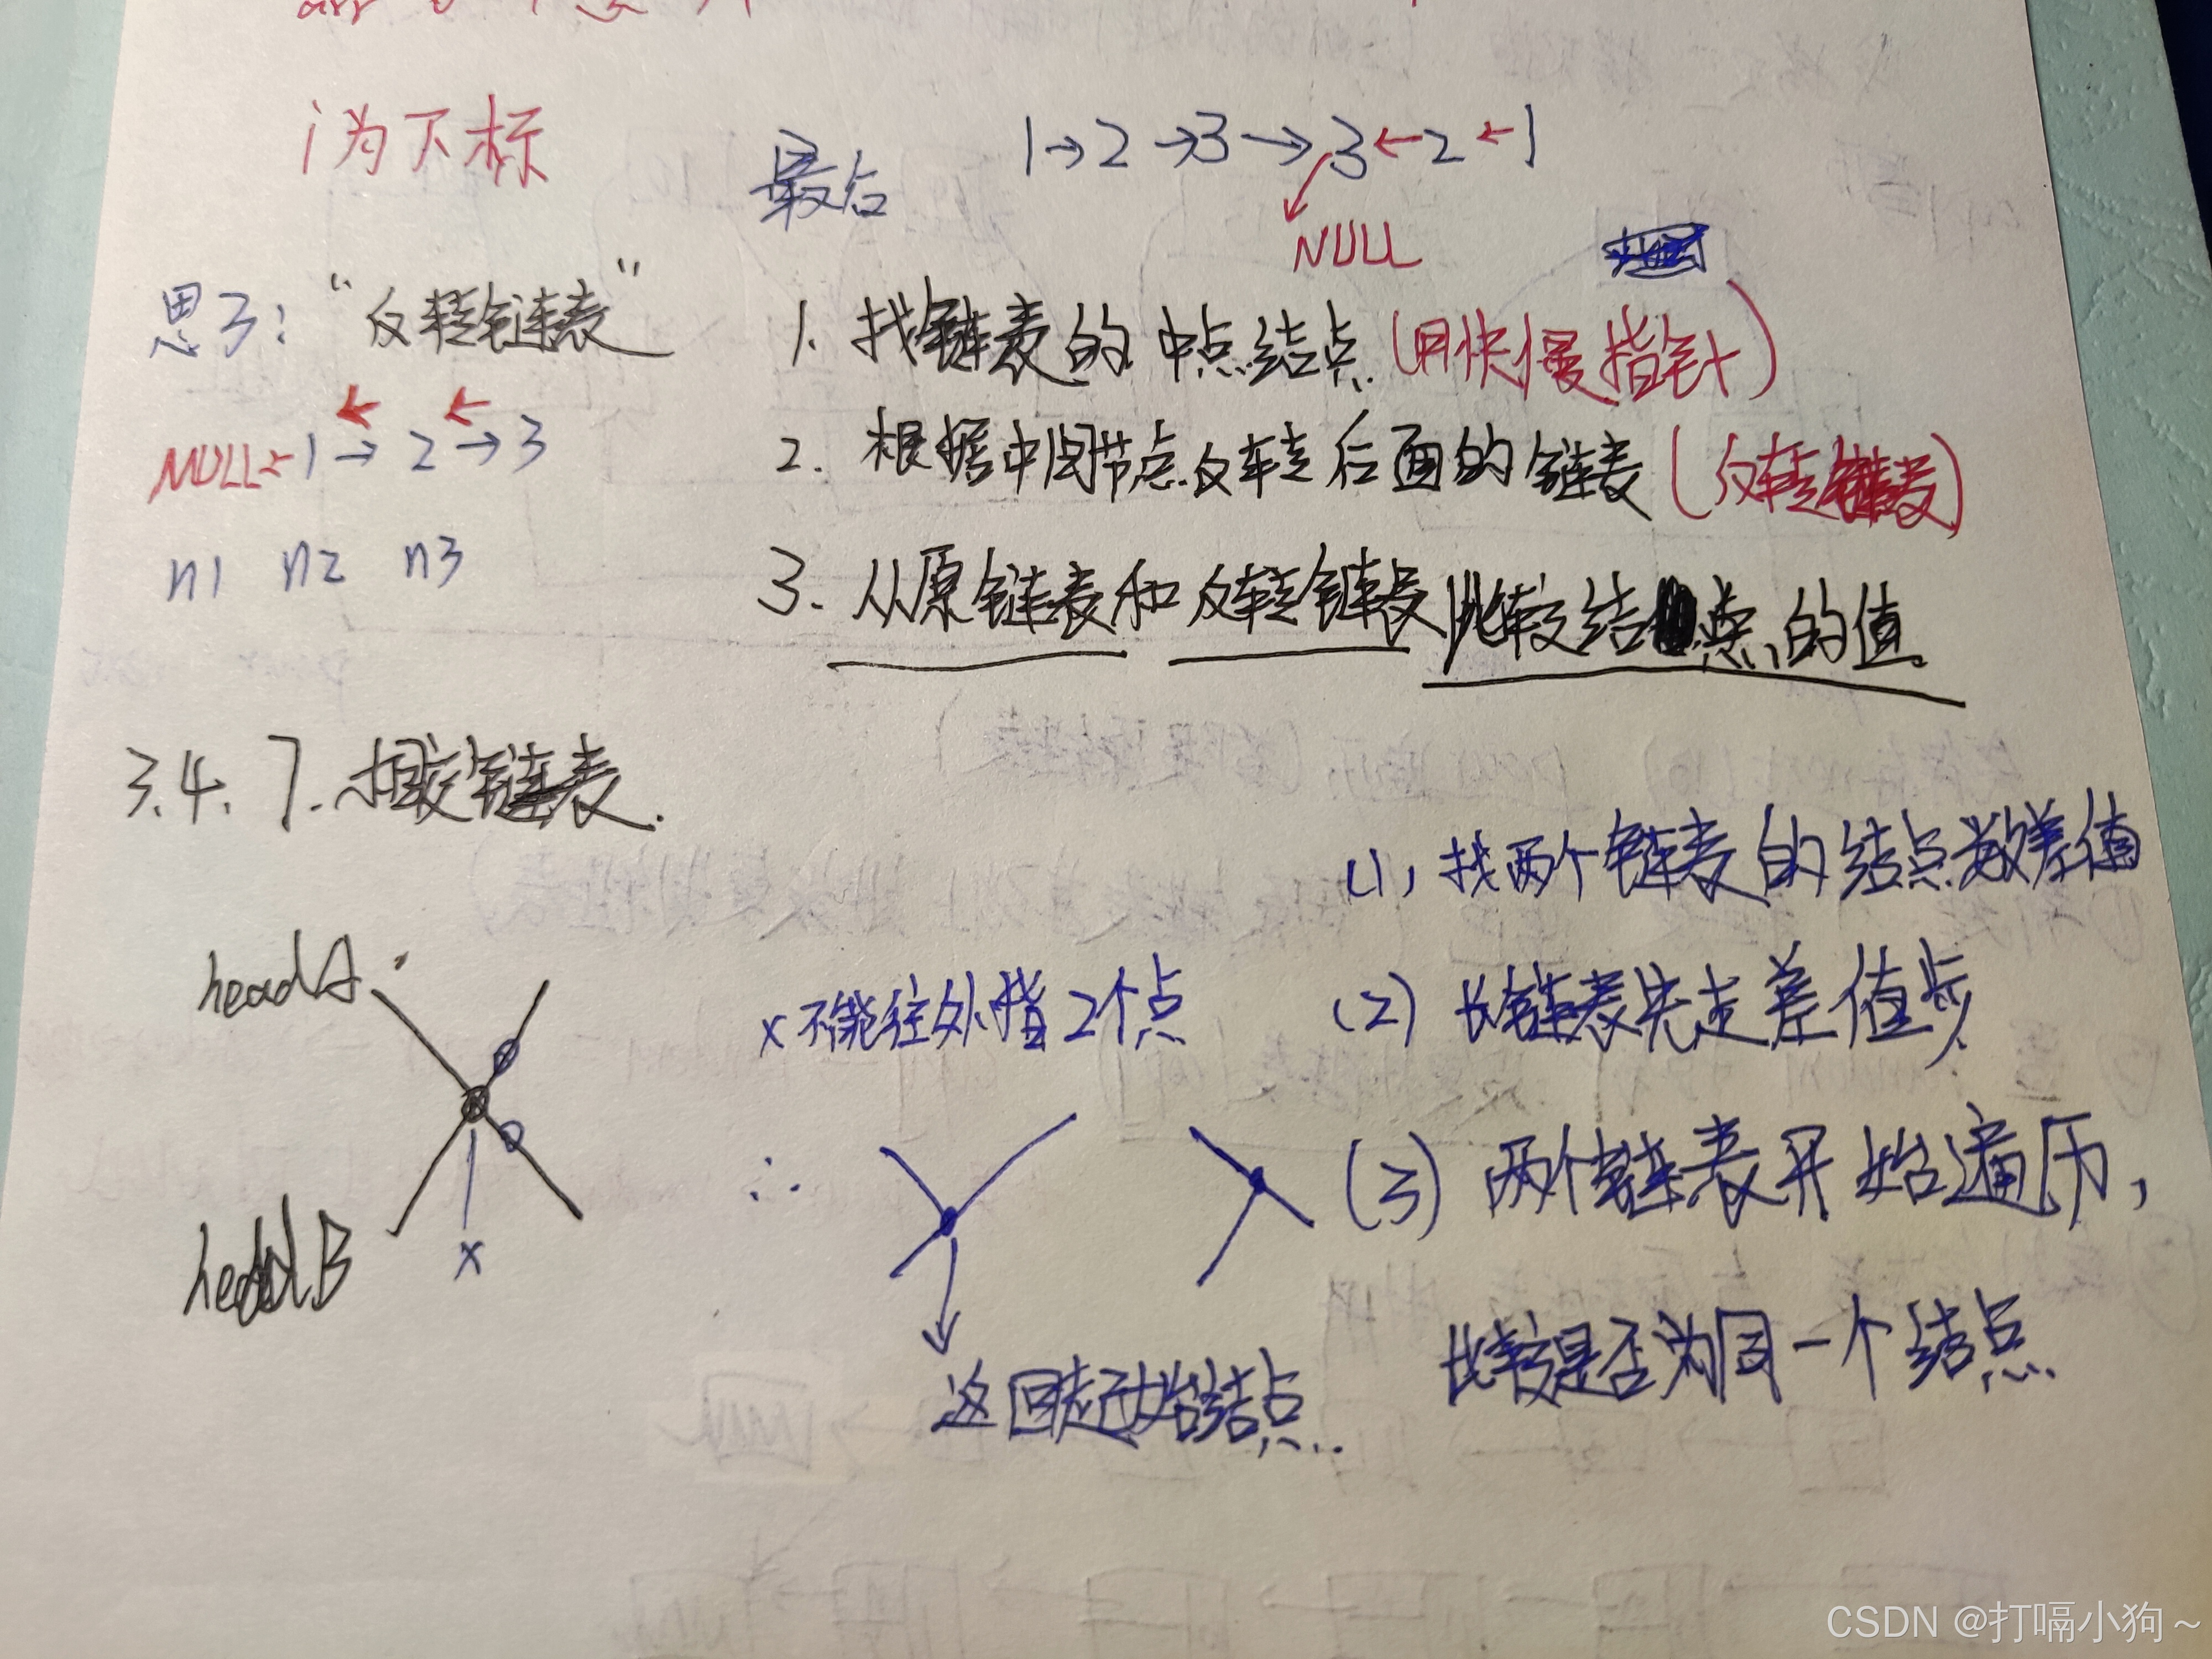 i为下标
最后
1→2→3→3←2←1
NULL
思3："反转链表"
NULL←1→2→3
n1 n2 n3
1. 找链表的中点结点(用快慢指针)
2. 根据中间节点反转后面的链表(反转链表)
3. 从原链表和反转链表比较结点的值
3.4.7.相交链表.
headA
headB
x
x不能往外指2个点
∴
返回起始结点.
(1)，找两个链表的结点数差值
(2) 长链表先走差值步
(3) 两个链表开始遍历，
比较是否为同一个结点
CSDN @打嗝小狗~